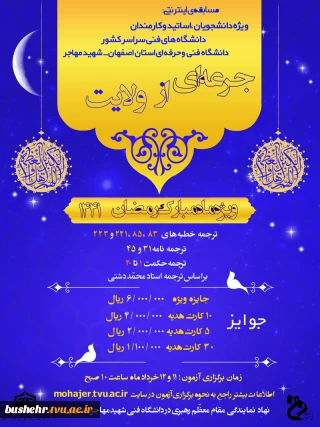 مسابقه‌ی اینترنتی:
ویژه دانشجویان، اساتید و کارمندان
دانشگاه های فنی سراسر کشور
دانشگاه فنی و حرفه ای استان اصفهان - شهید مهاجر
جرعه‌ای از ولایت
ویژه ماه مبارک رمضان ۱۴۴۱
ترجمه خطبه‌های ۸۳، ۸۵، ۲۲۱ و ۲۲۳
ترجمه نامه ۳۱ و ۴۵
ترجمه حکمت ۱ تا ۲۰
بر اساس ترجمه استاد محمد دشتی
جوایز
جایزه ویژه ۶/۰۰۰/۰۰۰ ریال
۱۰ کارت هدیه ۴/۰۰۰/۰۰۰ ریال
۵ کارت هدیه ۲/۰۰۰/۰۰۰ ریال
۳۰ کارت هدیه ۱/۱۰۰/۰۰۰ ریال
زمان برگزاری آزمون: ۱۱ و ۱۲ خرداد ماه ساعت ۱۰ صبح
اطلاعات بیشتر راجع به نحوه برگزاری آزمون در سایت mohajer.tvu.ac.ir
نهاد نمایندگی مقام معظم رهبری در دانشگاه فنی شهید مهاجر
bushehr.tvu.ac.ir